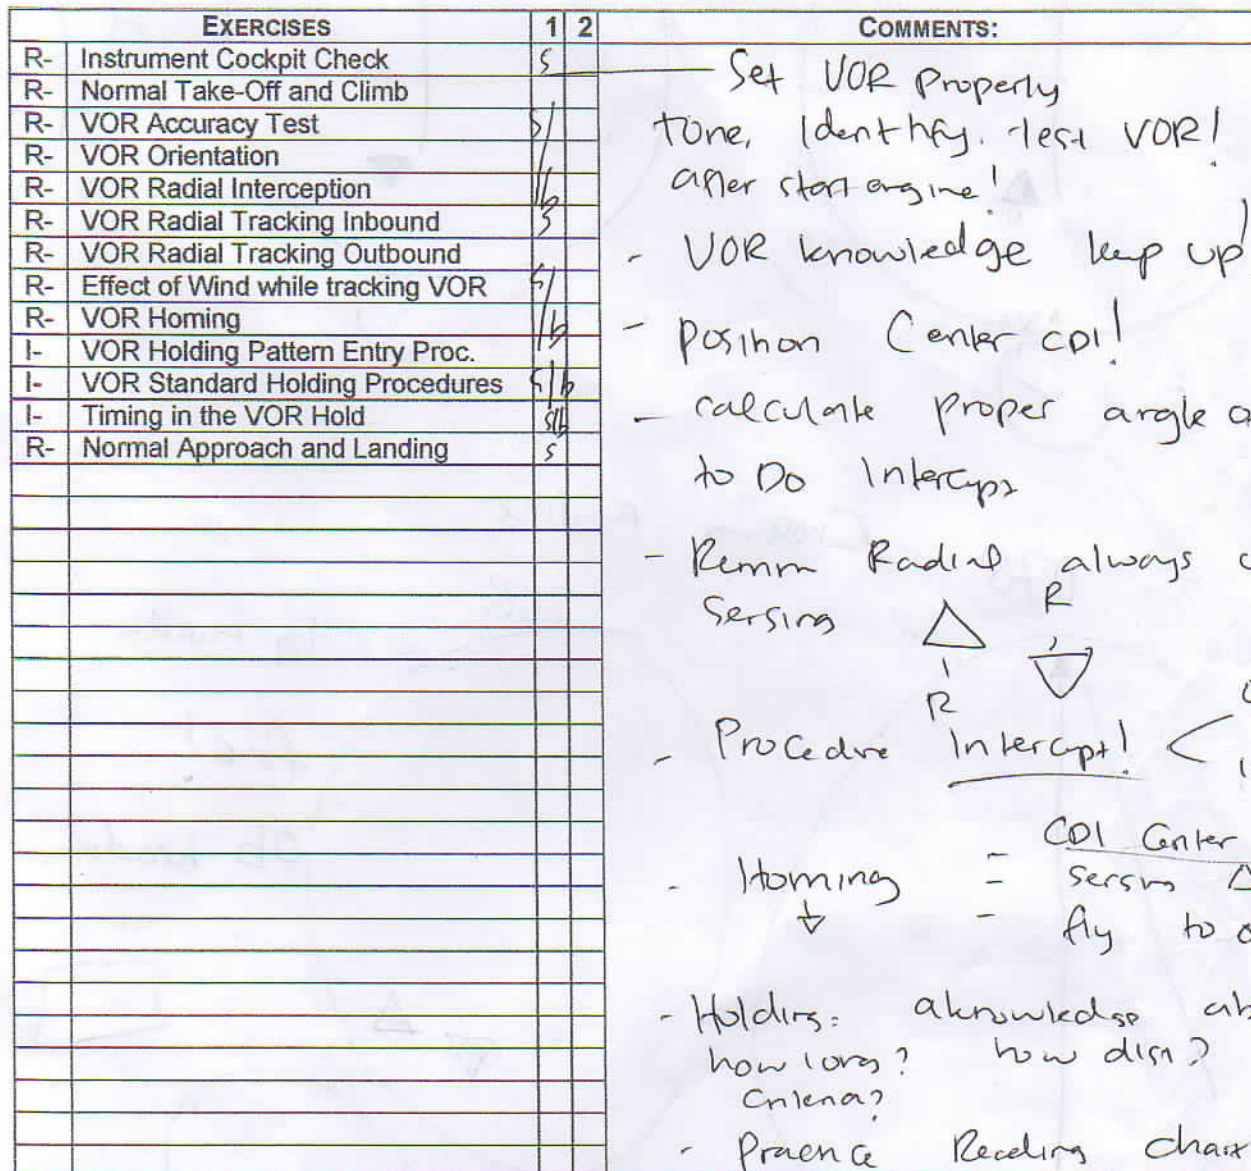 EXERCISES 1 2 COMMENTS:
R- Instrument Cockpit Check S
R- Normal Take-Off and Climb
R- VOR Accuracy Test S/
R- VOR Orientation
R- VOR Radial Interception /b
R- VOR Radial Tracking Inbound S
R- VOR Radial Tracking Outbound
R- Effect of Wind while tracking VOR S/
R- VOR Homing /b
I- VOR Holding Pattern Entry Proc.
I- VOR Standard Holding Procedures S/b
I- Timing in the VOR Hold S/b
R- Normal Approach and Landing S
Set VOR Properly
tune, Identify, test VOR!
after start engine!
- VOR knowledge keep up!
- Position Center CDI!
- calculate proper angle
to Do Intercept
- Remm Radial always
Sensing R
R
- Procedure Intercept! <
CDI Center
- Homing = sensing
- fly to
- Holding: aknowledge
how long? how
Criteria?
- Practice Reading chart